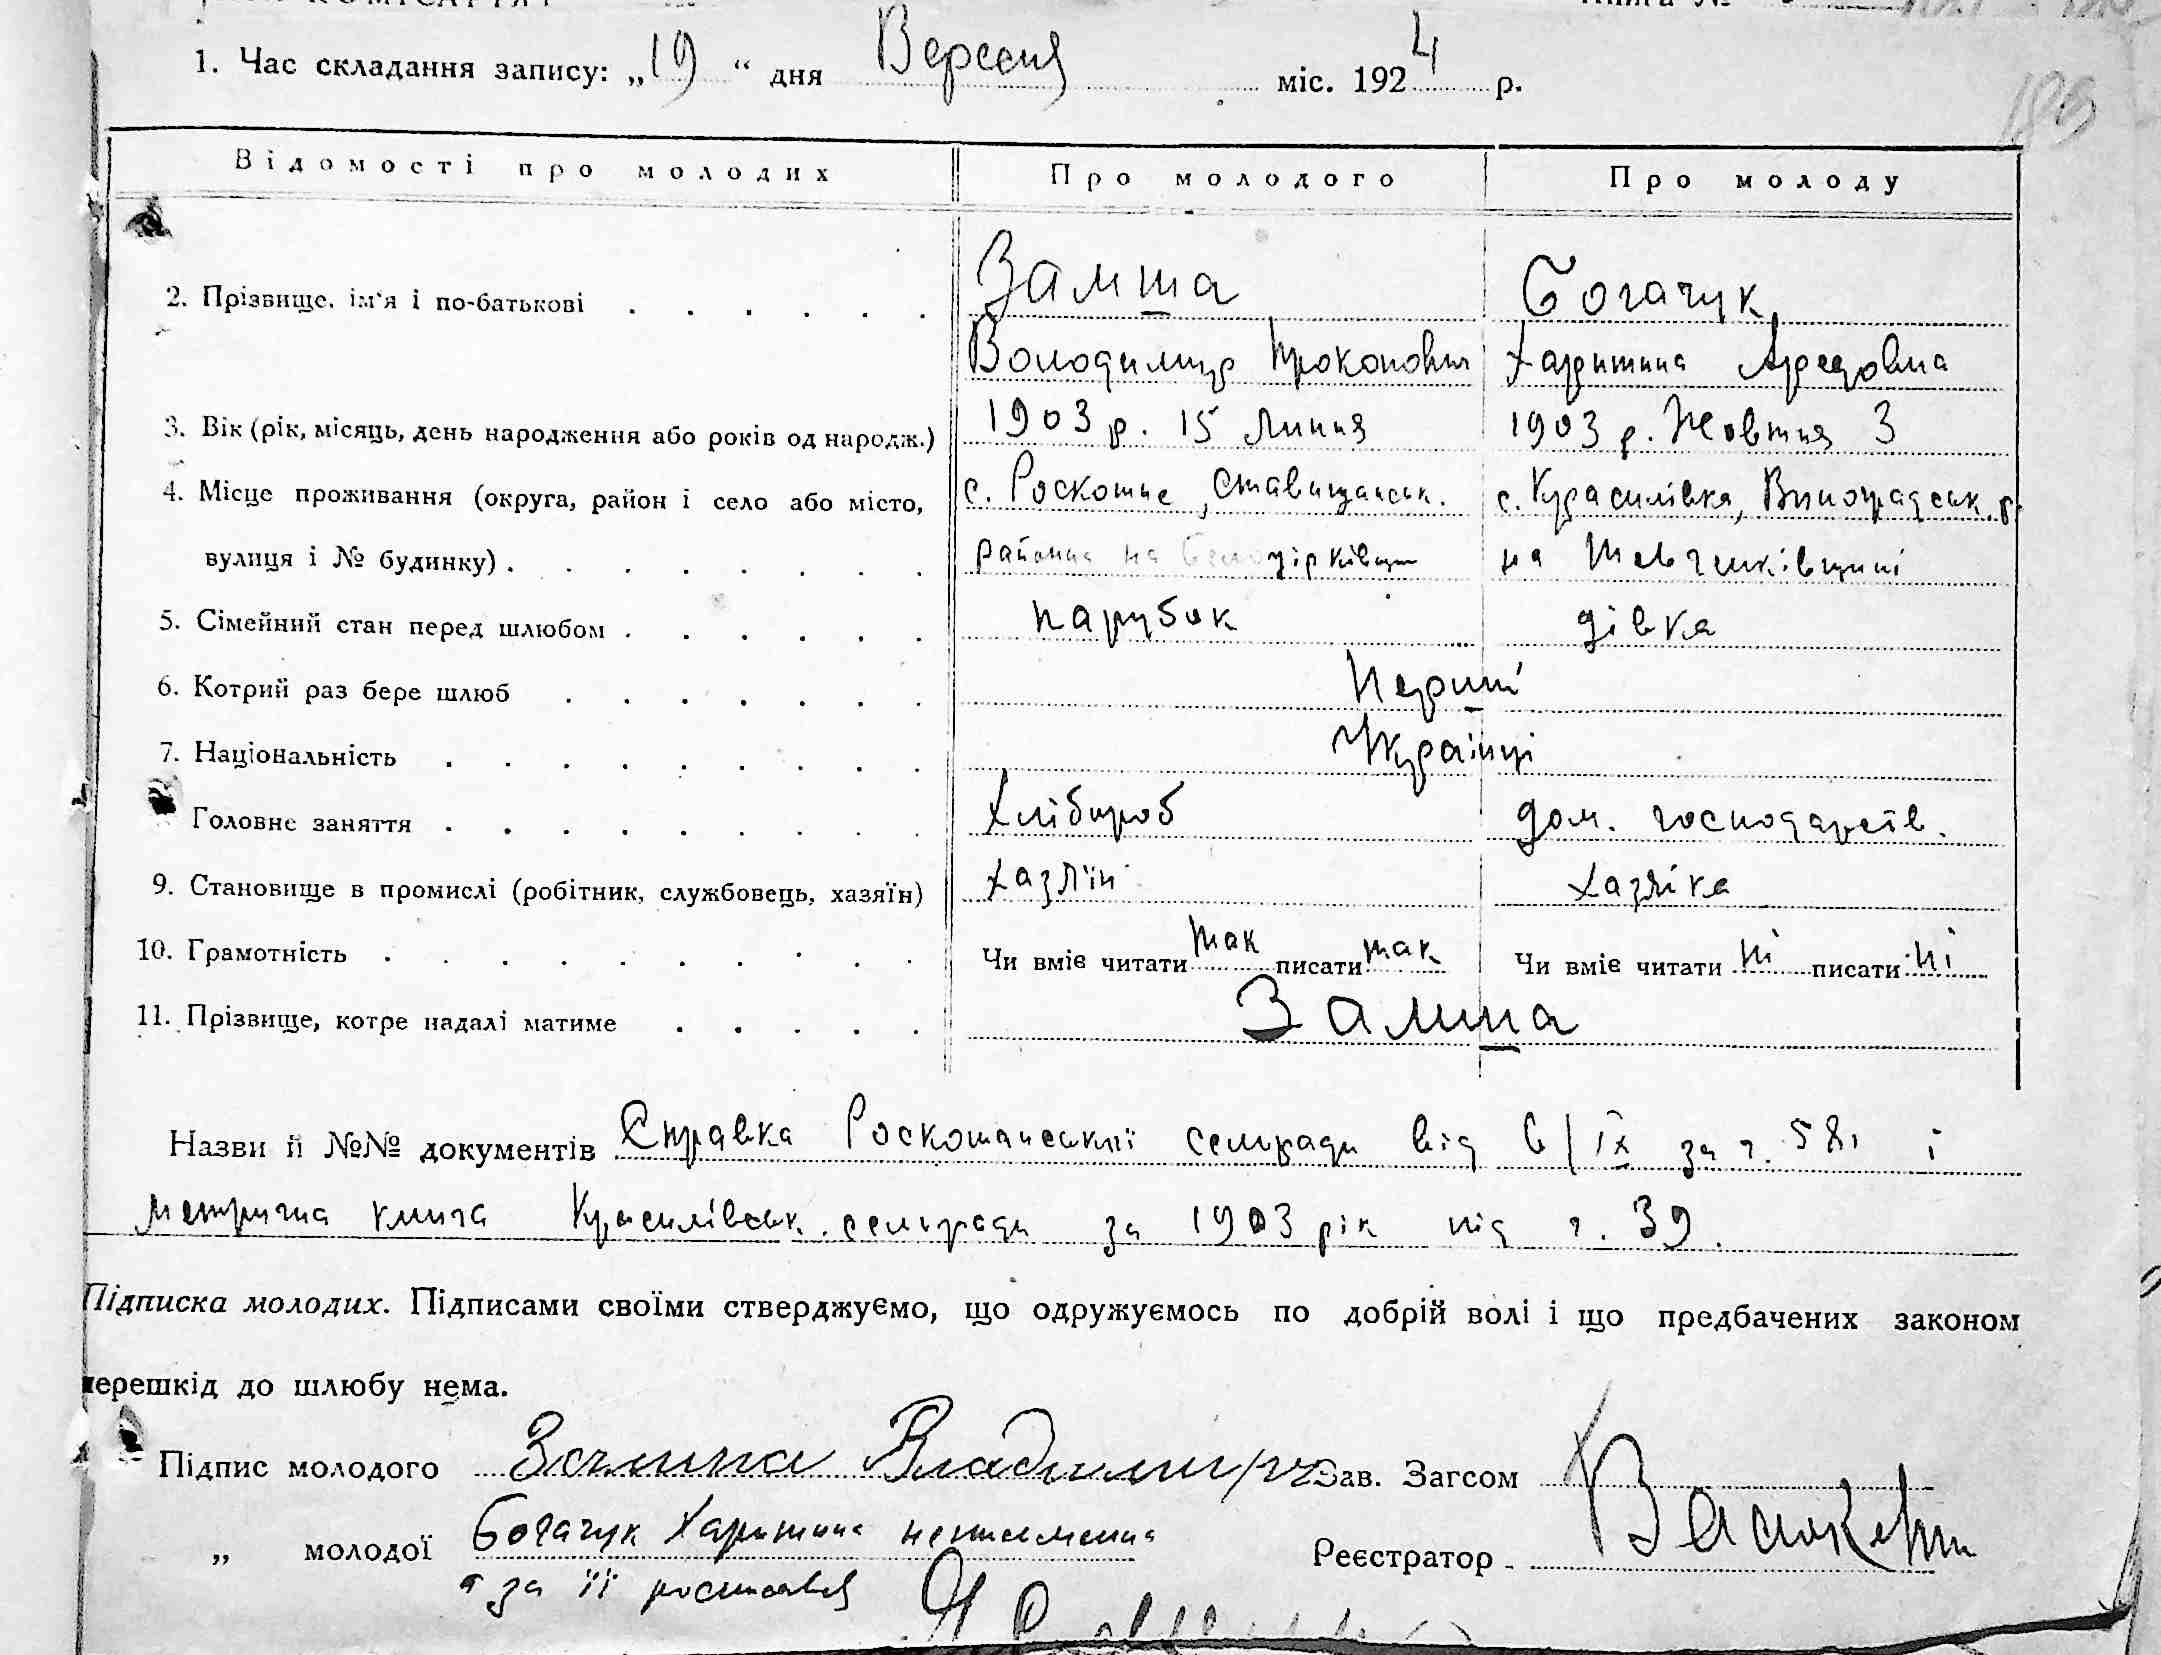 1. Час складання запису: „19“ дня Вересня міс. 1924 р.
189
Відомості про молодих Про молодого Про молоду
2. Прізвище, ім'я і по-батькові Замша Богачук
Володимир Прокопович Харитина Аредовна
3. Вік (рік, місяць, день народження або років од народж.) 1903 р. 15 Липня 1903 р. Жовтня 3
4. Місце проживання (округа, район і село або місто, с. Роскошне, Ставищанськ. с. Красилівка, Виноградськ. р.
вулиця і № будинку) района на Білоцірківщ на Шевченківщині
5. Сімейний стан перед шлюбом парубок дівка
6. Котрий раз бере шлюб Перший
7. Національність Українці
Головне заняття Хлібороб дом. господарств.
9. Становище в промислі (робітник, службовець, хазяїн) хазяїн хазяіка
10. Грамотність Чи вміє читати так писати так Чи вміє читати ні писати ні
11. Прізвище, котре надалі матиме Замша
Назви й №№ документів Справка Роскошанської сельради від 6/ІХ за ч. 581 і
метрична книга Красилівськ. сельради за 1903 рік під ч. 39.
Підписка молодих. Підписами своїми стверджуємо, що одружуємось по добрій волі і що предбачених законом
перешкід до шлюбу нема.
Підпис молодого Замша Владимир Зав. Загсом
„ молодої Богачук Харитина неписменна Реєстратор
а за її росписався